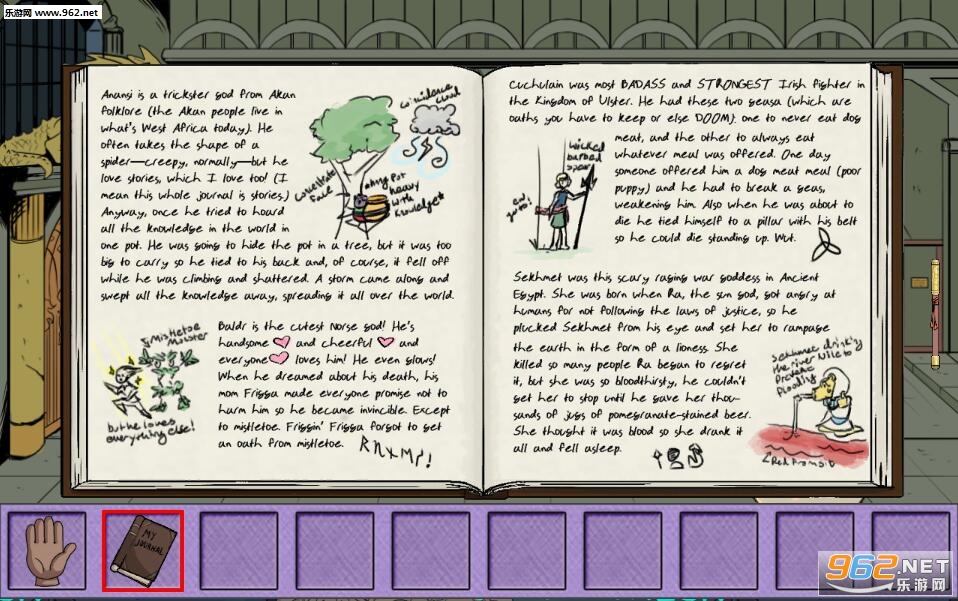 乐游网 www.962.net
Anansi is a trickster god from Akan
folklore (the Akan people live in
what's West Africa today). He
often takes the shape of a
spider—creepy, normally—but he
love stories, which I love too! (I
mean this whole journal is stories.)
Anyway, once he tried to hoard
all the knowledge in the world in
one pot. He was going to hide the pot in a tree, but it was too
big to carry so he tied to his back and, of course, it fell off
while he was climbing and shattered. A storm came along and
swept all the knowledge away, spreading it all over the world.
coincidence
cloud
concentrate
face
heavy
with
knowledge
Baldr is the cutest Norse god! He's
handsome and cheerful and
everyone loves him! He even glows!
When he dreamed about his death, his
mom Frigga made everyone promise not to
harm him so he became invincible. Except
to mistletoe. Friggin' Frigga forgot to get
an oath from mistletoe.
Mistletoe
Monster
but he loves
everything else!
Cuchulain was most BADASS and STRONGEST Irish fighter in
the Kingdom of Ulster. He had these two geasa (which are
oaths you have to keep or else DOOM): one to never eat dog
meat, and the other to always eat
whatever meal was offered. One day
someone offered him a dog meat meal (poor
puppy) and he had to break a geas,
weakening him. Also when he was about to
die he tied himself to a pillar with his belt
so he could die standing up. Wut.
wicked
barbed
spear
Sekhmet was this scary raging war goddess in Ancient
Egypt. She was born when Ra, the sun god, got angry at
humans for not following the laws of justice, so he
plucked Sekhmet from his eye and set her to rampage
the earth in the form of a lioness. She
killed so many people Ra began to regret
it, but she was so bloodthirsty, he couldn't
get her to stop until he gave her thou-
sands of jugs of pomegranate-stained beer.
She thought it was blood so she drank it
all and fell asleep.
Sekhmet drinking
the river Nile to
prevent
flooding
Red from
MY
JOURNAL
962.NET
乐游网